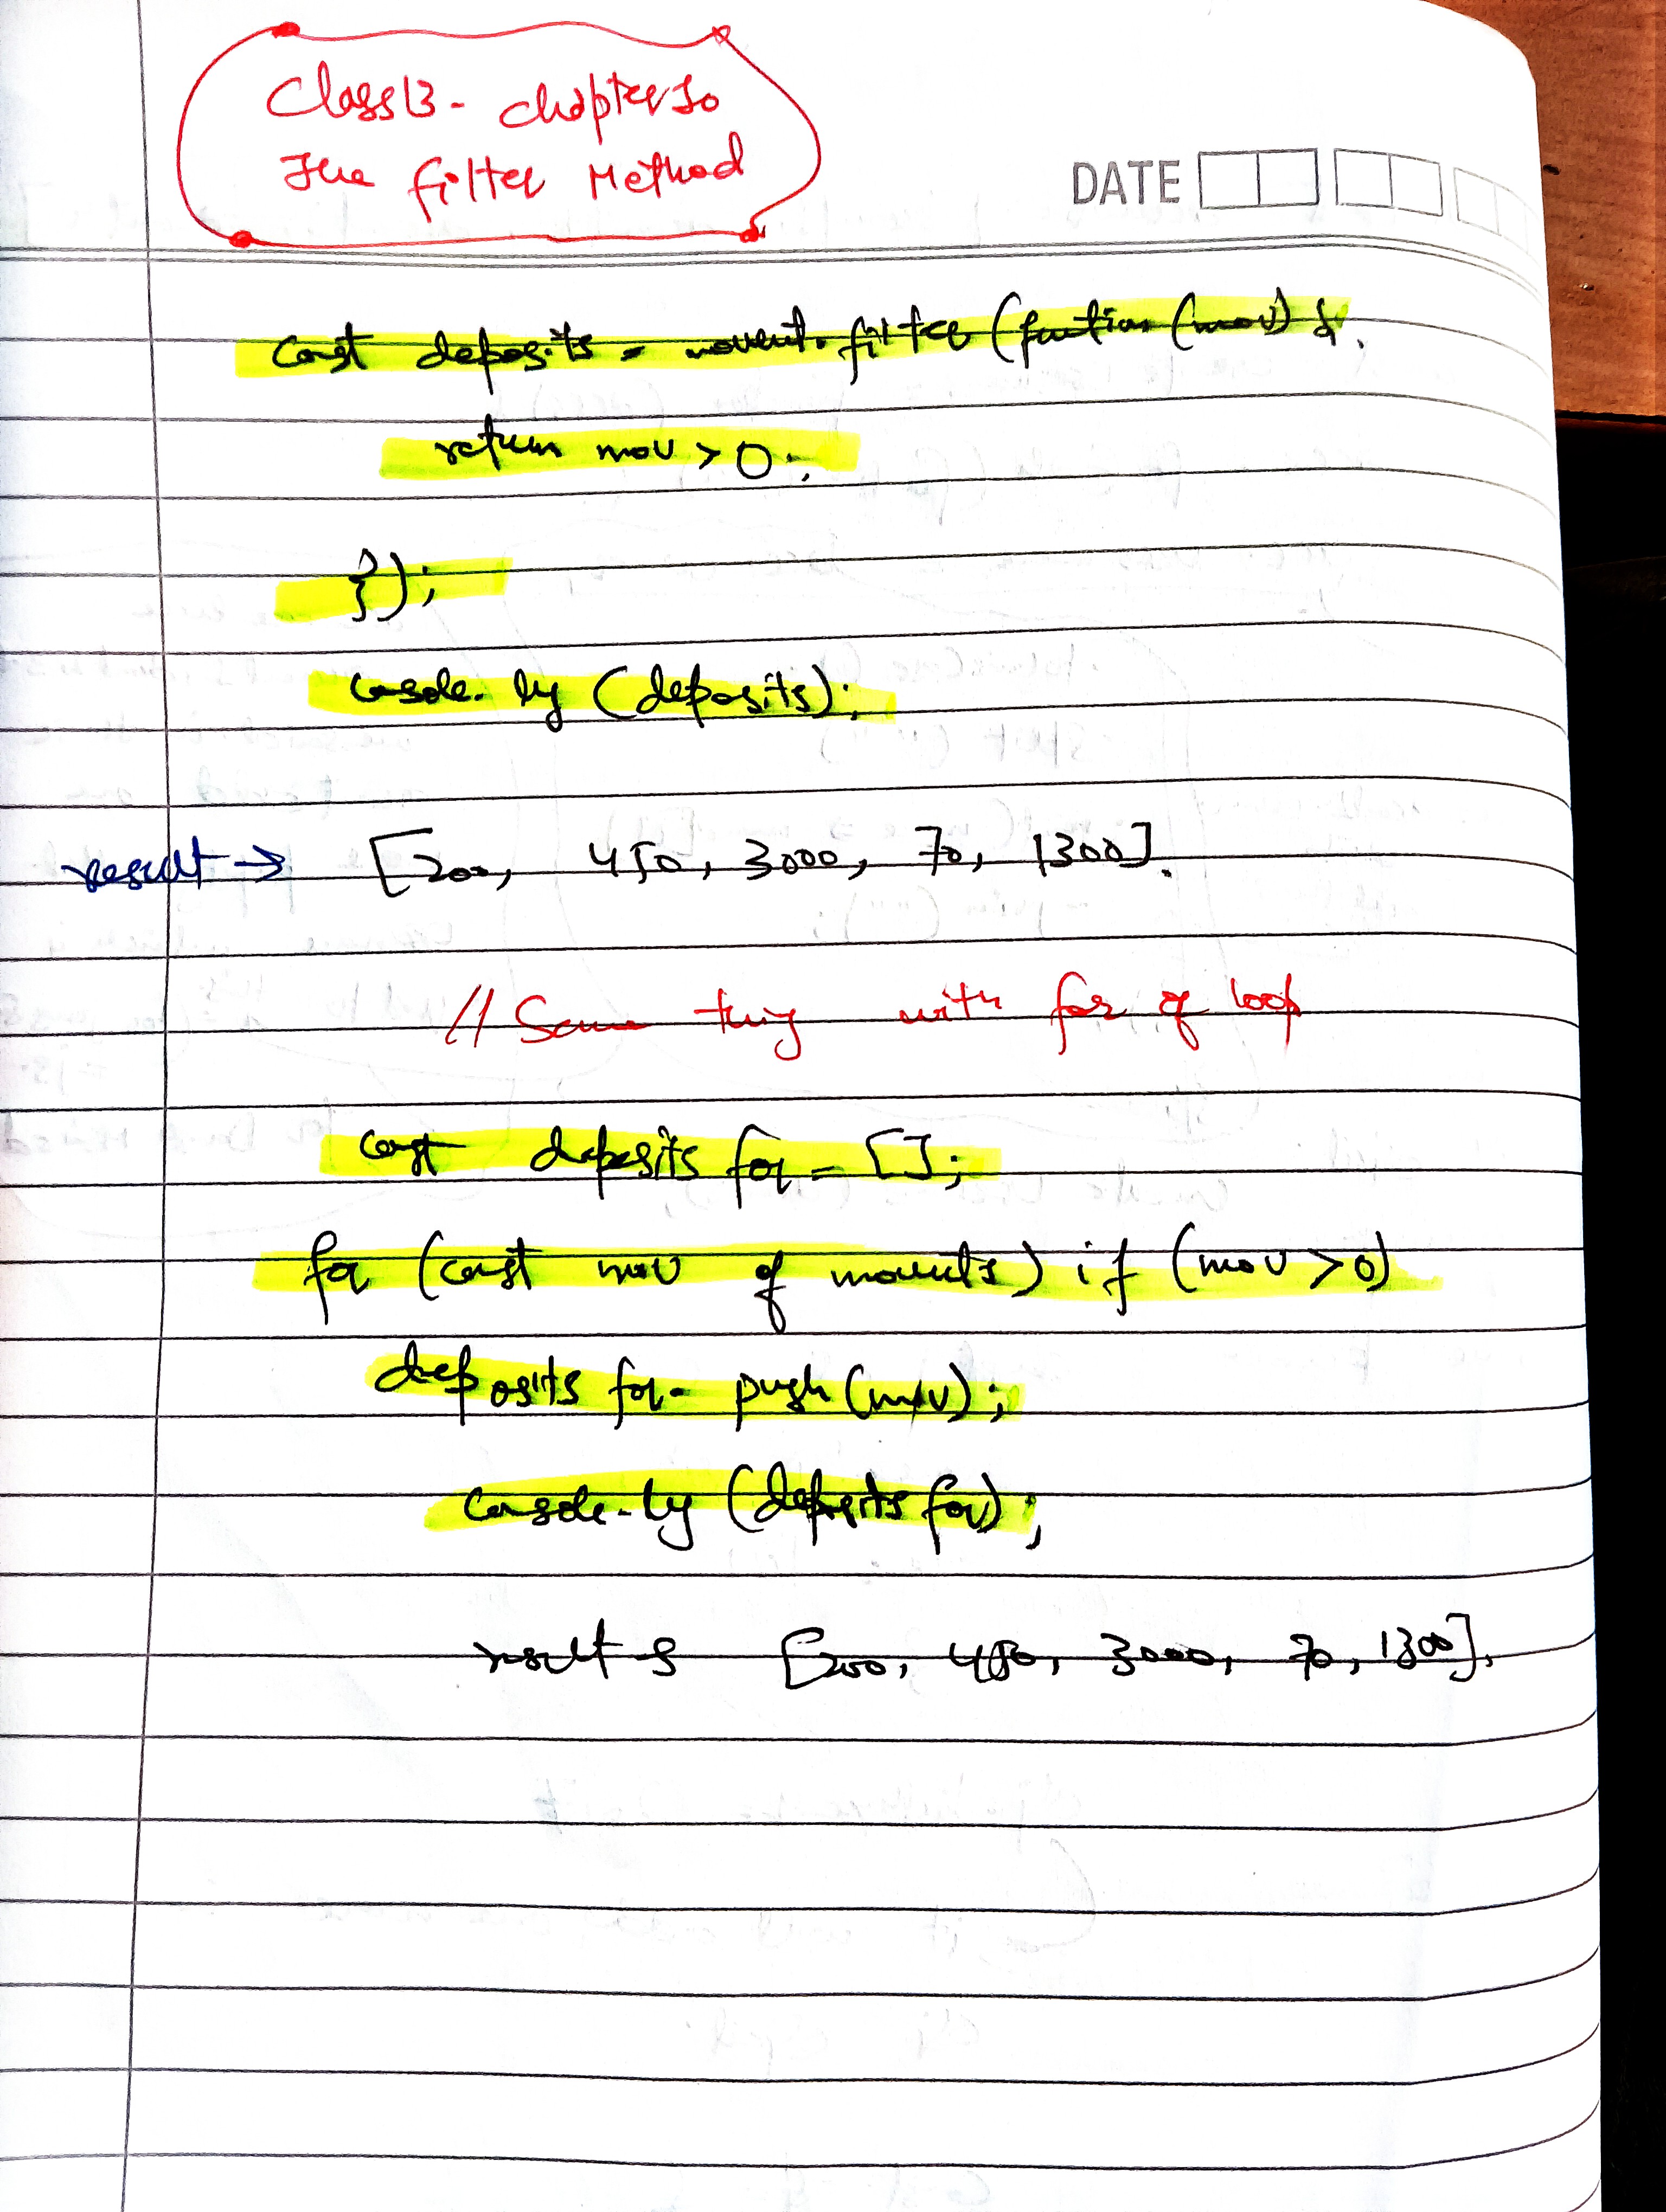 Class 13 - chapter 10
The filter Method
DATE
const deposits = movent.filter (function (mov) {.
return mov > 0;
});
console.log (deposits);
result → [200, 450, 3000, 70, 1300].
// Same thing with for of loop
const deposits for = [];
for (const mov of movents) if (mov > 0)
deposits for. push (mov);
console.log (deposits for);
result [200, 450, 3000, 70, 1300].